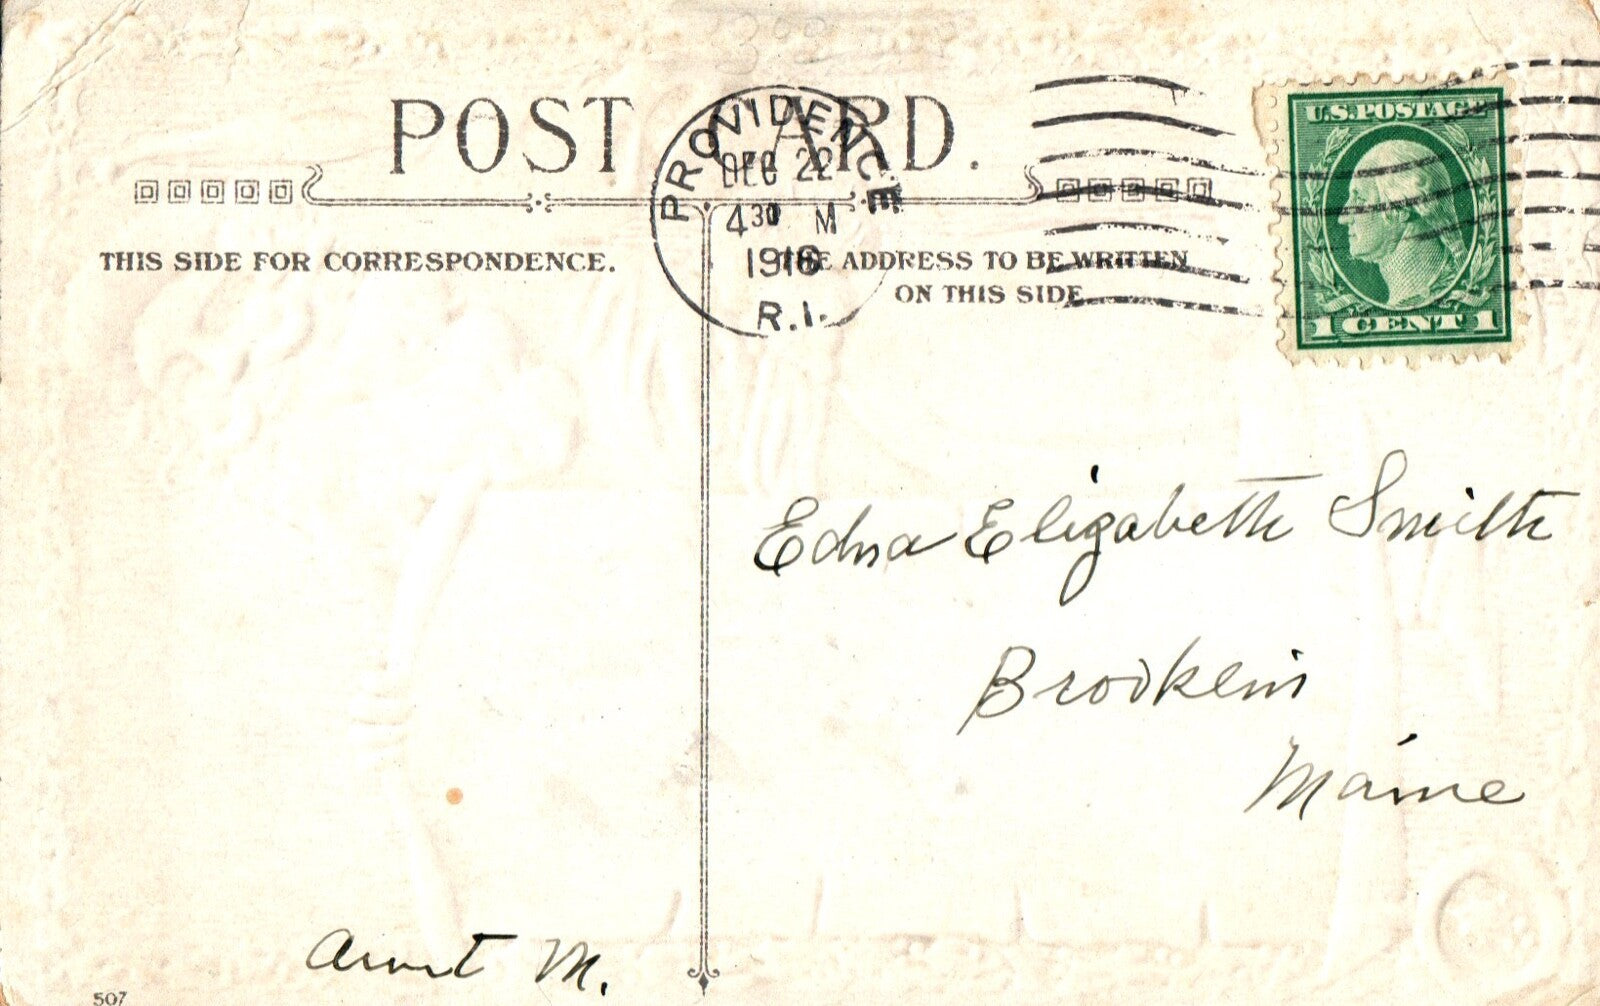 POST CARD.
PROVIDENCE
DEC 22
4 30 M
1916
R.I.
U.S. POSTAGE
1 CENT 1
THIS SIDE FOR CORRESPONDENCE.
THE ADDRESS TO BE WRITTEN
ON THIS SIDE
Edna Elizabeth Smith
Brooklin
Maine
Aunt M.
507